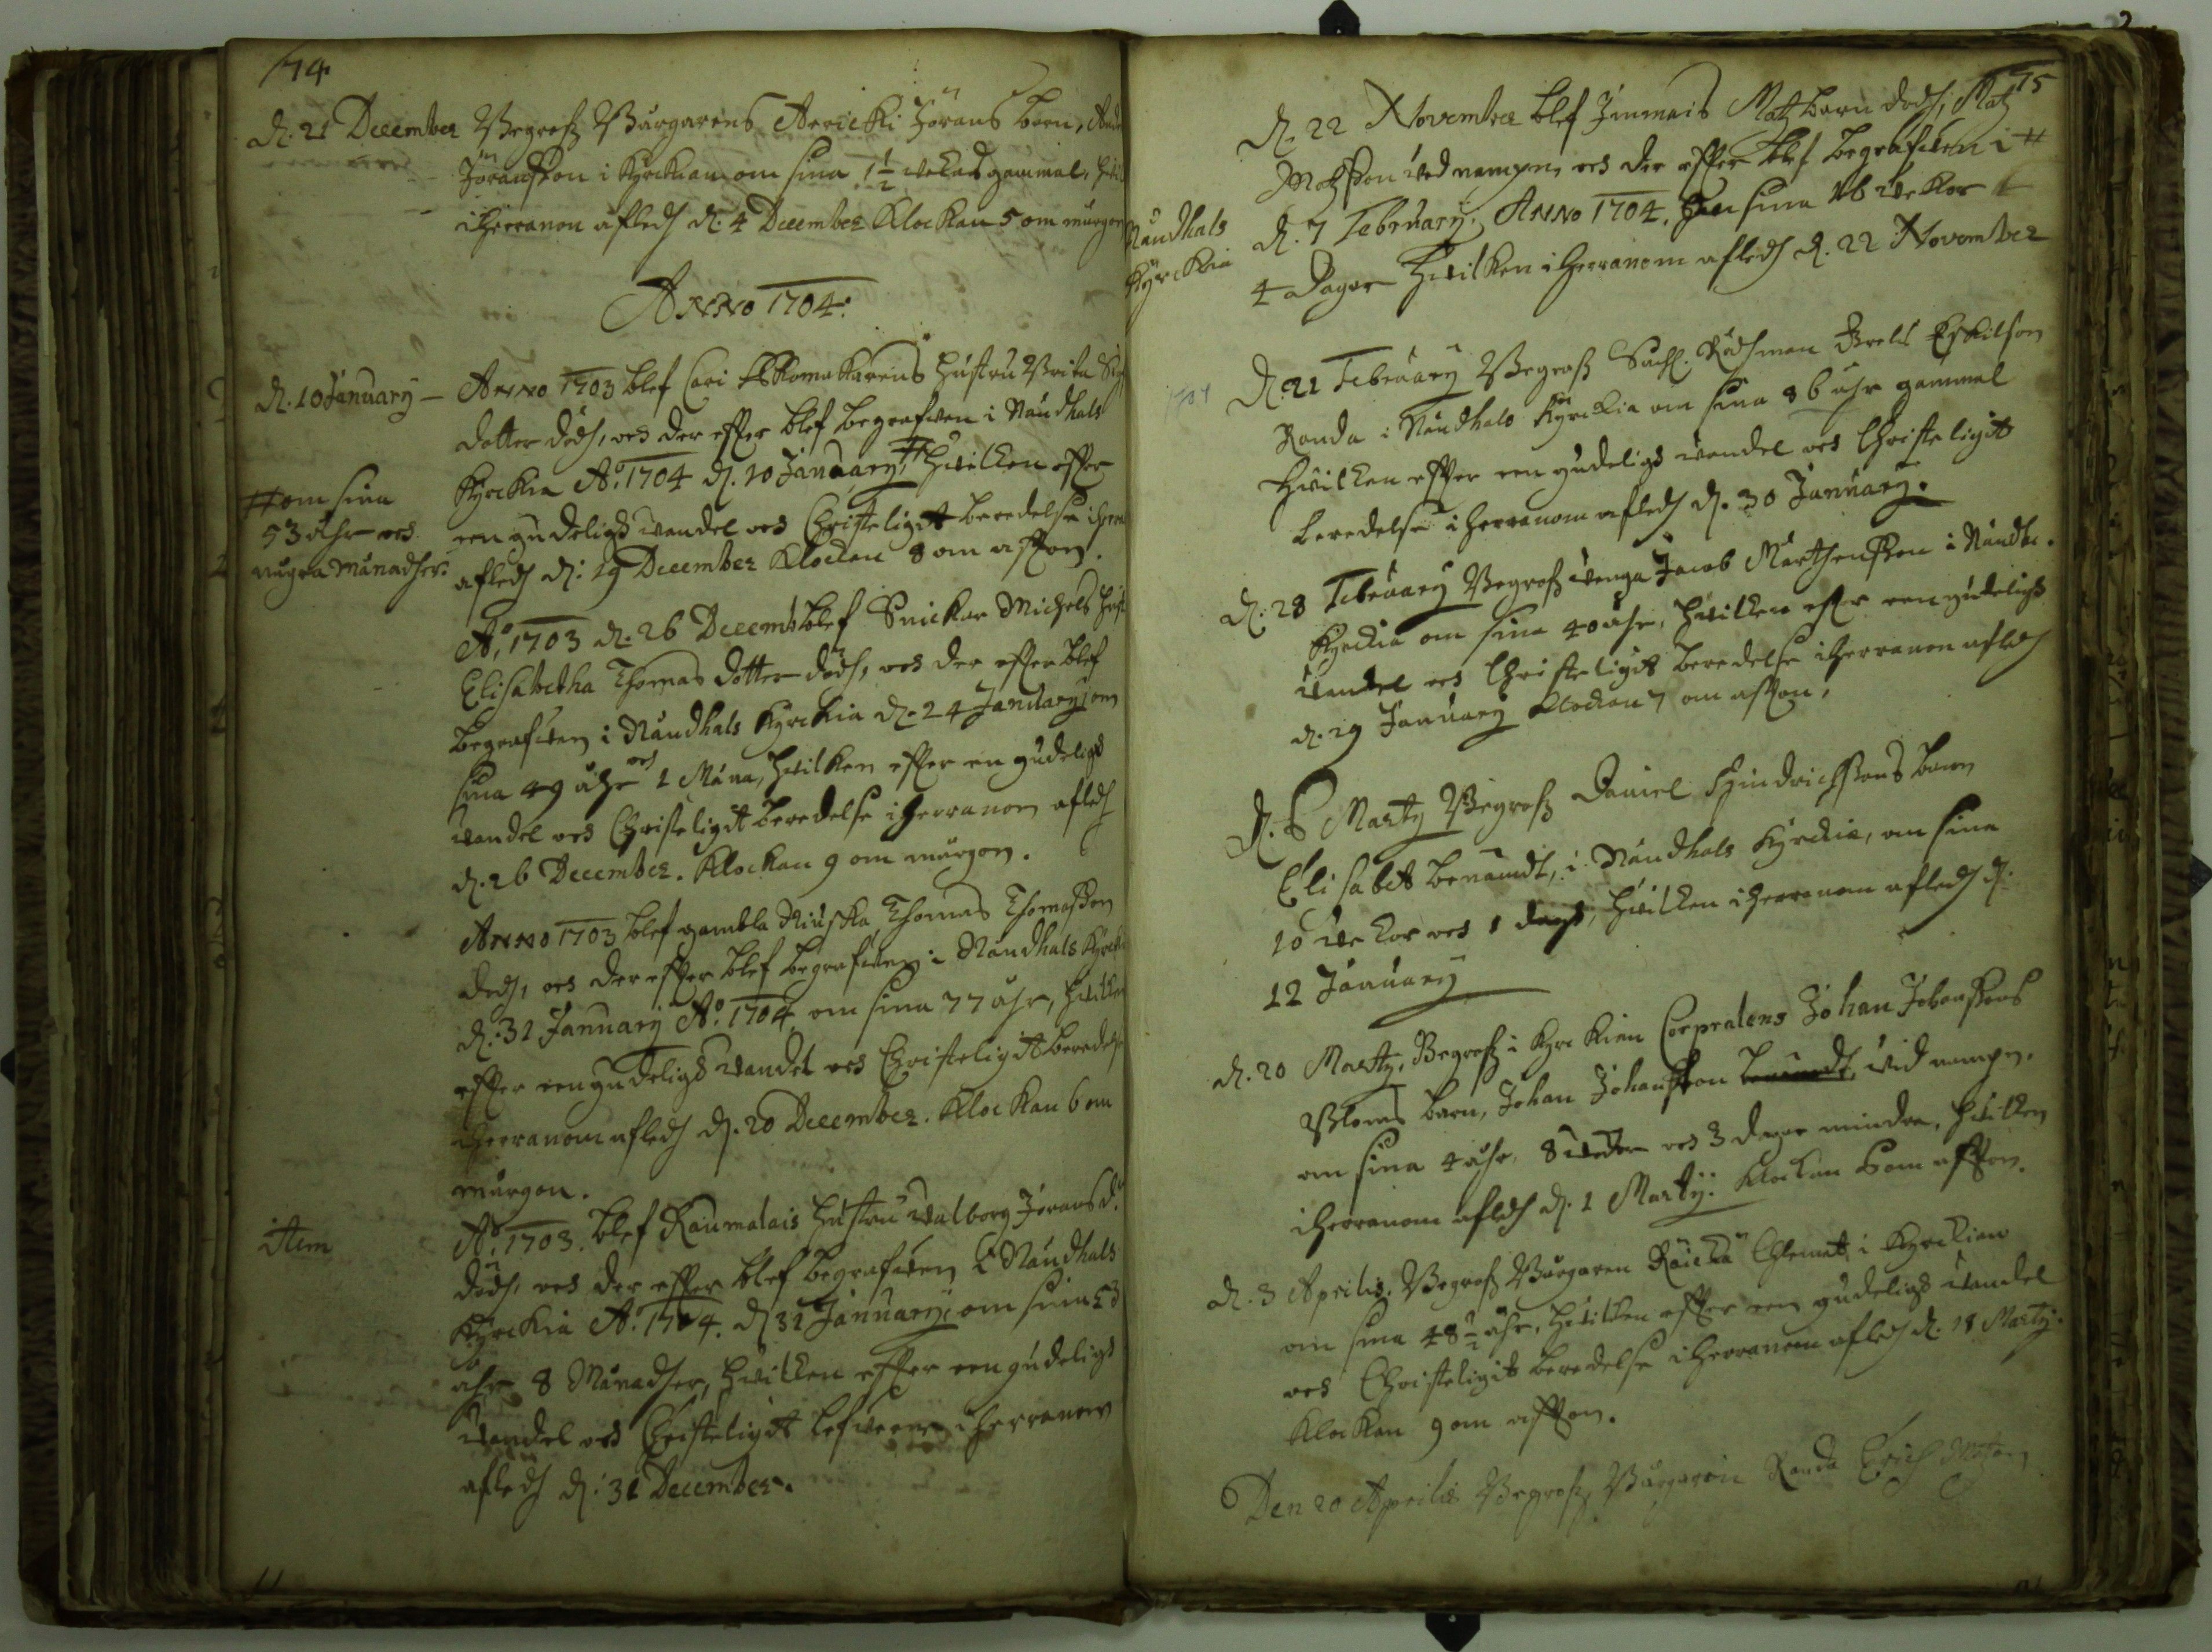 74
d. 21 December Begrofz Burgarens Arricki Jörans barn,
Jöransson i Kyrckian om sina 1 1/2 wekas gammal,
i Herranom afledh d. 4 December Klockan 5 om murgon
ANNO 1704:
d. 10 January – ANNO 1703 blef Cari Skomakarens hustru Brita
dotter dödh, och der effter blef begrafwen i Naudhals
Kyrckia A:o 1704 d. 10 January, # hwilcken effter
# om sina
53 åhr och
några Månadher.
een gudeligh wandel och Christeligit beredelse i Herra
afledh d: 19 December Klockan 8 om affton.
A:o 1703 d. 26 Decemb blef Snickar Michels
Elisabetha Thomas dotter dödh, och der effter blef
begrafwen i Naudhals Kyrckia d. 24 January, om
sina 49 åhr och 1 Måna, hwilken effter en gudeligh
wandel och Christeligit beredelse i Herranom afledh
d. 26 December. Klockan 9 om murgon.
ANNO 1703 blef gambla Thomas Thomasson
dödh, och der effter blef begrafwen i Naudhals Kyrcki
d. 31 January A:o 1704 om sina 77 åhr, hwilken
effter een gudeligh wandel och Christeligit beredelse
i Herranom afledh d. 20 December. Klockan 6 om
murgon.
item
A:o 1703. blef Raumalais hustru Walborg Jörans d:r
dödh, och der effter blef begrafwen i Naudhals
Kyrckia A:o 1704. d. 31 January, om sina 53
åhr 8 Månadher, hwilken effter een gudeligh
wandel och Christeligit lefwerne i Herranom
afledh d: 31 December.
75
d. 22 November blef Immais Matz barn dödh, Matz
Matzson wed nampn, och der effter blef begrafwen i #
Naudhals
Kyrckia
d. 7 February, ANNO 1704. om sina weckor
4 dagar hwilken i Herranom afledh d. 22 November
1704
d. 21 February Begrofz Sahl. Rådhman Brels Eskilson
Randa i Naudhals Kyrckia om sina 86 åhr gammal
hwilcken effter een gudeligh wandel och Christeligit
beredelse i Herranom afledh d. 30 January.
d. 28 February Begrofz unga Jacob Mårthensson i Naudh.
Kyrckia om sina 40 åhr, hwilcken effter een gudeligh
wandel och Christeligit beredelse i Herranom afledh
d. 29 January Klockan 7 om affton.
d. 6 Marty Begrofz Daniel Hindrichssons barn
Elisabet benämdt, i Naudhals Kyrckia, om sina
10 weckor och 1 dagh, hwilcken i Herranom afledh d.
12 January
d. 20 Marty, Begrofz i Kyrckien Corpralens Johan Johanssons
Bloms barn, Johan Johansson benämdt, wid nampn.
om sina 4 åhr, 8 weckor och 3 dagar mindre, hwilken
i Herranom afledh d. 1 Martij. Klockan 6 om affton.
d. 3 Aprilis, Begrofz Burgaren Räickä Clemet i Kyrckian
om sina 48 1/2 åhr, hwilcken effter een gudeligh wandel
och Christeligit beredelse i Herranom afledh d. 18 Marty.
Klockan 9 om affton.
Den 20 Aprilis Begrofz, Burgaren Randa Erich Matson